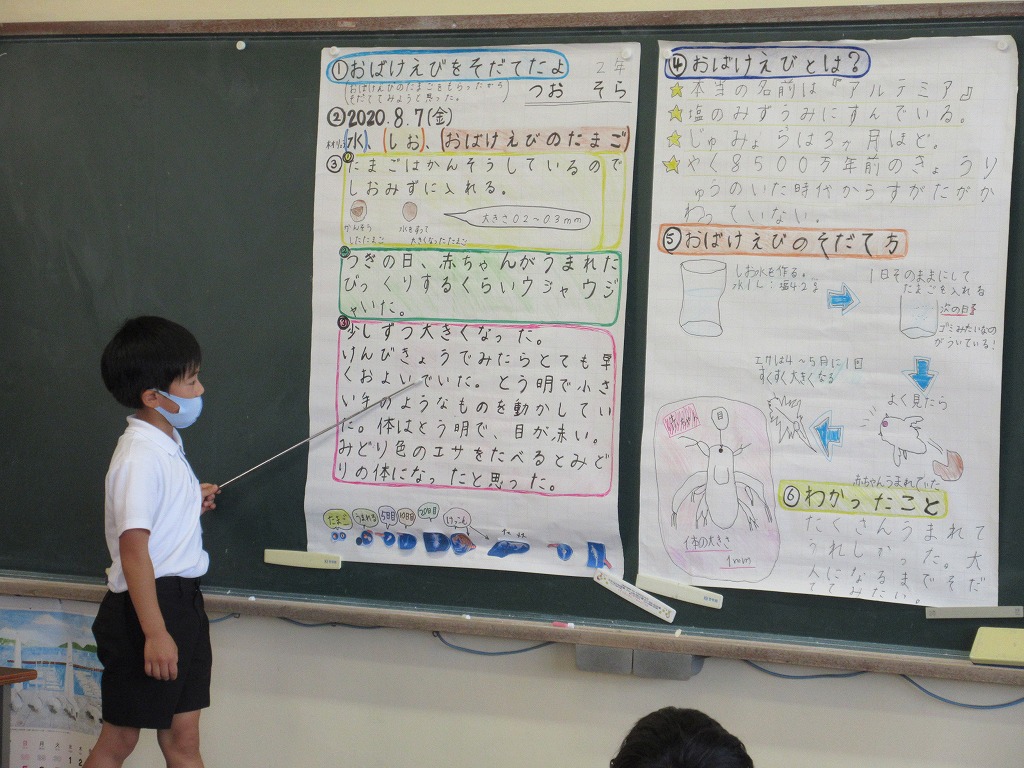 ①おばけえびをそだてたよ
２年
おばけえびのたまごをもらったから
そだててみようと思った。
つお　そら
②2020.8.7(金)
水、しお、おばけえびのたまご
③
たまごはかんそうしているので
しおみずに入れる。
かんそう
したたまご
水をすって
大きくなったたまご
大きさ0.2〜0.3mm
つぎの日、赤ちゃんがうまれた
びっくりするくらいウジャウジ
ャいた。
少しずつ大きくなった。
けんびきょうでみたらとても早
くおよいでいた。とう明で小さ
い手のようなものを動かしてい
た。体はとう明で、目が赤い。
みどり色のエサをたべるとみど
りの体になったと思った。
たまご
うまれる
5日目
10日目
20日目
けっこん
④おばけえびとは？
本当の名前は『アルテミア』
塩のみずうみにすんでいる。
じゅみょうは3ヶ月ほど。
やく8500万年前のきょうり
ゅうのいた時代からすがたがか
わっていない。
⑤おばけえびのそだて方
しお水を作る。
水1L：塩42g
1日そのままにして
たまごを入れる
次の日
ゴミみたいなの
がういている！
よく見たら
赤ちゃんうまれていた
エサは4〜5日に1回
すくすく大きくなる
目
体の大きさ
1mm
⑥わかったこと
たくさんうまれて
うれしかった。大
人になるまでそだ
ててみたい。